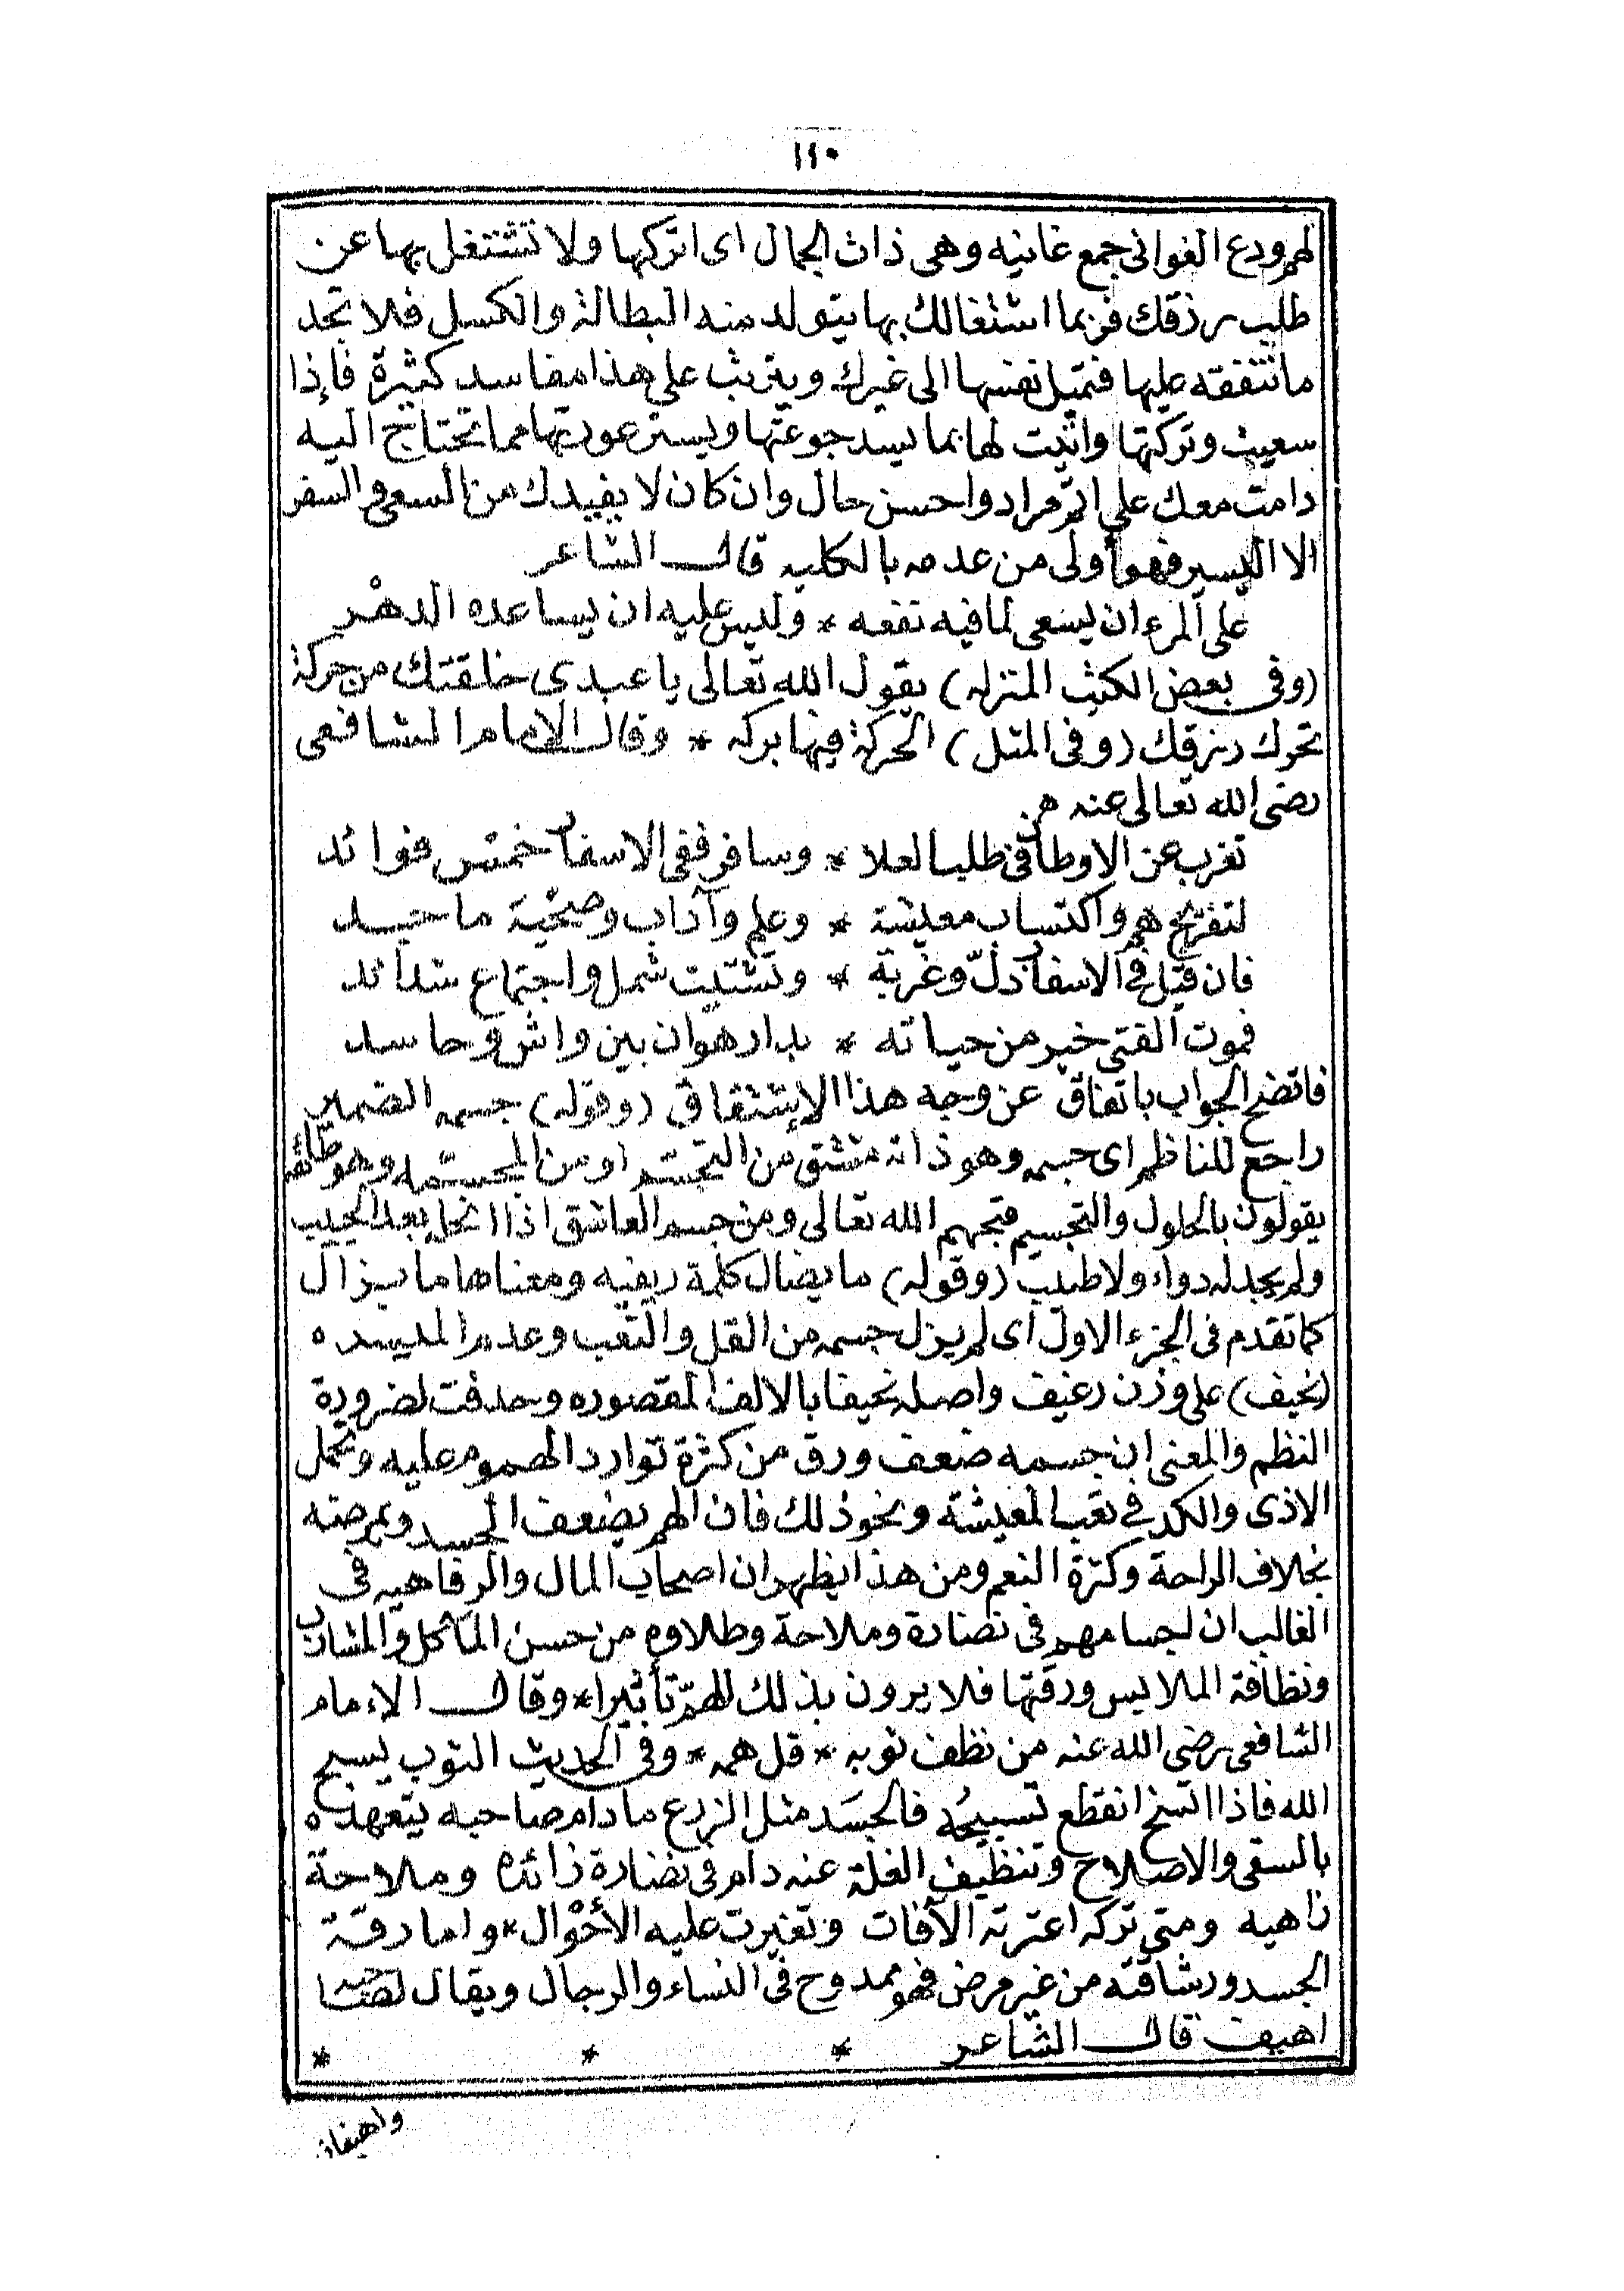 ١١٠
لهم ودع الغوانى جمع غانيه وهى ذات الجمال اى اتركها ولا تشتغل بها عن
طلب رزقك فربما اشتغالك بها يتولد منه البطالة والكسل فلا تجد
ما تنفقه عليها فتميل نفسها الى غيرك ويترتب على هذا مفاسد كثيرة فإذا
سعيت وتركتها واتيت لها بما يسد جوعتها ويستر عورتها مما تحتاج اليه
دامت معك على اتم مراد واحسن حال وان كان لا يفيدك من السعى والسفر
الا اليسير فهو أولى من عدمه بالكليه قال الشاعر
على المرء ان يسعى لما فيه نفعه * وليس عليه ان يساعده الدهْر
(وفى بعض الكتب المنزله) يقول الله تعالى يا عبدى خلقتك من حركة
تحرك ارزقك (وفى المثل) الحركة فيها بركه * وقال الامام الشافعى
رضى الله تعالى عنه
تغرب عن الاوطان فى طلب العلا * وسافر ففى الاسفار خمس فوائد
لتفريج هم واكتساب معيشة * وعلم وآداب وصحبة ماجد
فان قيل فى الاسفار ذلّ وغربة * وتشتيت شمل واجتماع شدائد
فموت الفتى خير من حياته * بدار هوان بين واش وحاسد
فاتضح الجواب باتفاق عن وجه هذا الإشتقاق (وقوله) جسمه الضمير
راجع للناظم اى جسمه وهو ذاته مشتق من التجسّم او من المجسّمه وهو طائفه
يقولون بالحلول والتجسيم قبحهم الله تعالى ومن جسم العاشق اذا انحل بعد الحبيب
ولم يجد له دواء ولا طبيب (وقوله) ما يضال كلمة ريفيه ومعناها ما يزال
كما تقدم فى الجزء الاول اى لم يزل جسمه من القل والتعب وعدم الميسره
(نحيف) على وزن رغيف واصله نحيفا بالالف المقصوره وحذفت لضرورة
النظم والمعنى ان جسمه ضعف ورق من كثرة توارد الهموم عليه وتحمل
الاذى والكد فى تعب المعيشة ونحو ذلك فان الهم يضعف الجسد ويمرضه
بخلاف الراحة وكثرة النعم ومن هذا يظهر ان اصحاب المال والرفاهيه فى
الغالب ان اجسامهم فى نضارة وملاحة وطلاوه من حسن المأكل والمشارب
ونظافة الملابس ورقتها فلا يرون بذلك للهمّ تأثيرا * وقال الإمام
الشافعى رضى الله عنه من نظف ثوبه * قل همه * وفى الحديث الثوب يسبح
الله فاذا اتسخ انقطع تسبيحُه فالجسَد مثل الزرع ما دام صاحبه يتعهده
بالسقى والاصلاح وتنظيف الغلة عنه دام فى نضارة زائده وملاحة
زاهيه ومتى تركه اعترته الآفات وتغيرت عليه الأحْوال * واما رقة
الجسد ورشاقته من غير مرض فهو ممدوح فى النساء والرجال ويقال لصاحبه
اهيف قال الشاعر * * *
واهيفان